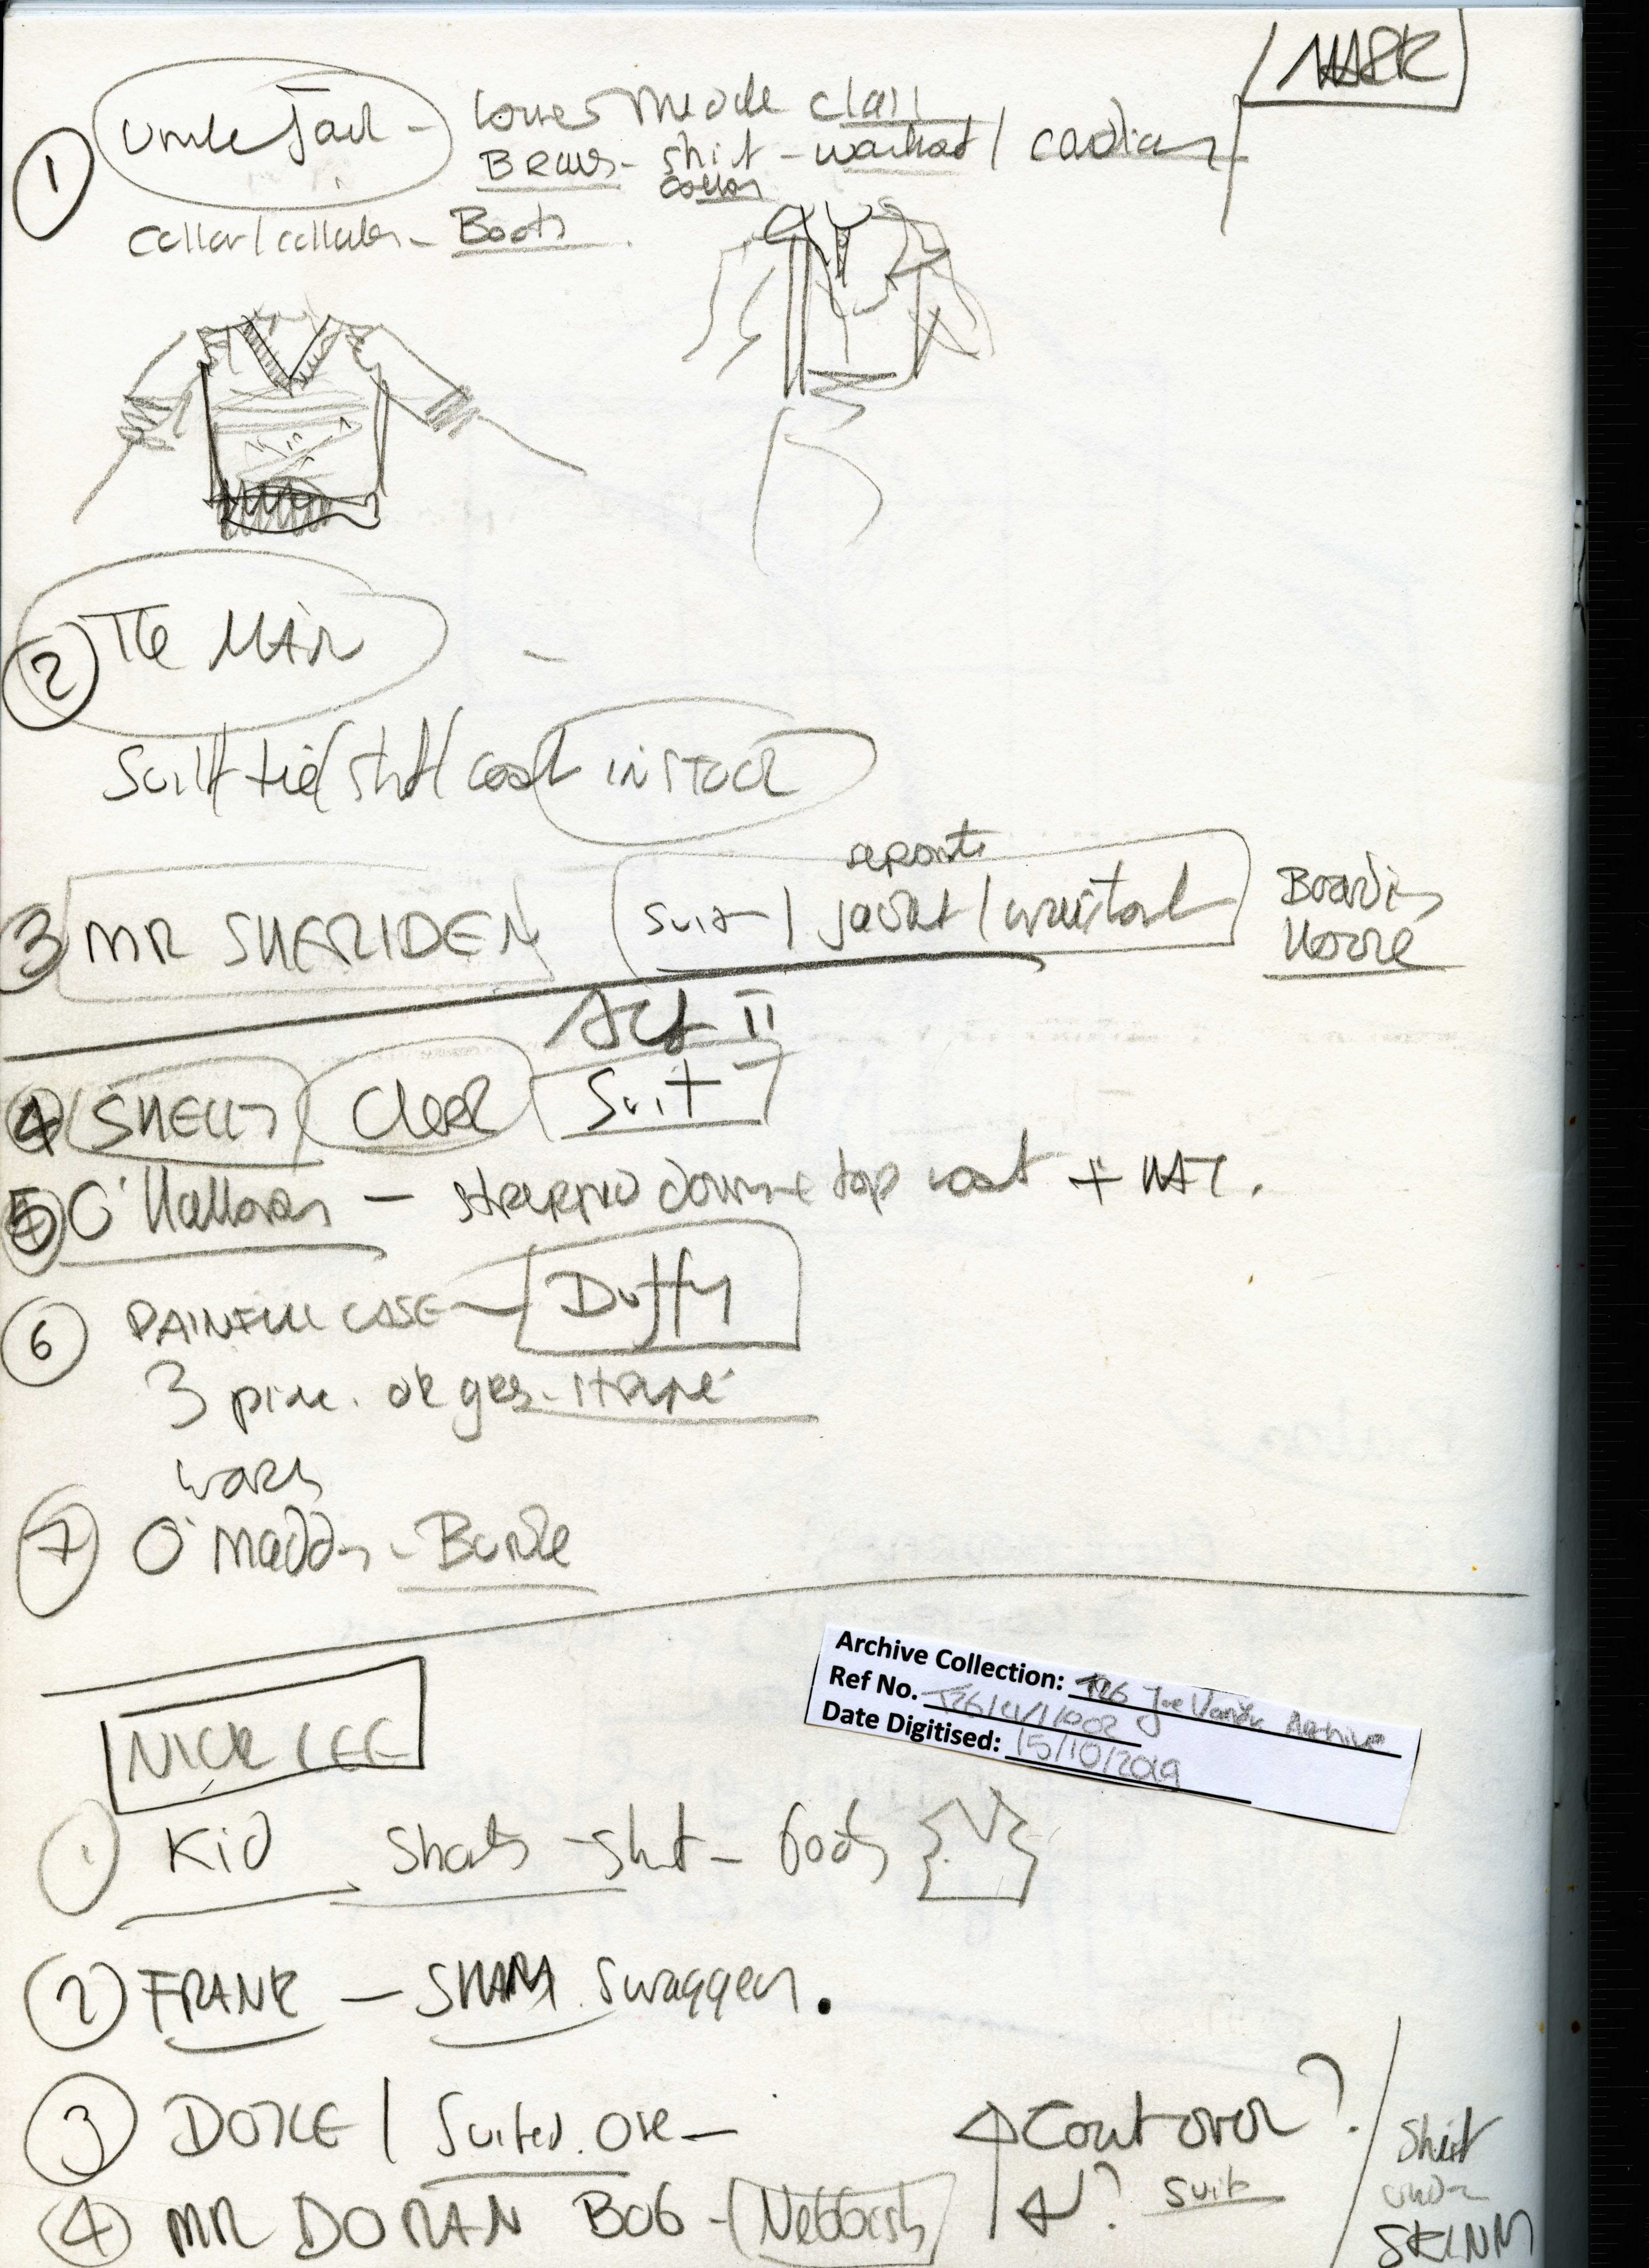 MARK
① Uncle Jack - Lower Middle Class
Braces - shirt - waistcoat / cardigan
collar
collar / collarless - Boots
② The MAN -
Suit / tie / shirt / coat IN STOCK
separate
③ MR SHERIDEN suit / jacket / waistcoat Boarding
House
Act II
④ SHELLY Clerk Suit
⑤ O'Halloran - top coat + HAT.
⑥ PAINFUL CASE - Duffy
3 piece. or grey
⑦ O'Madden - Burke
Archive Collection: T26 Joe Vanek Archive
Ref No. T26/4/1/1002
Date Digitised: 15/10/2019
NICK LEE
① Kid Shorts - shirt - boots
② FRANK - Swagger.
③ DOYLE / Suited. One -
Coat over?
④ MR DORAN BOB - Nebbish ? suit
Shirt
under